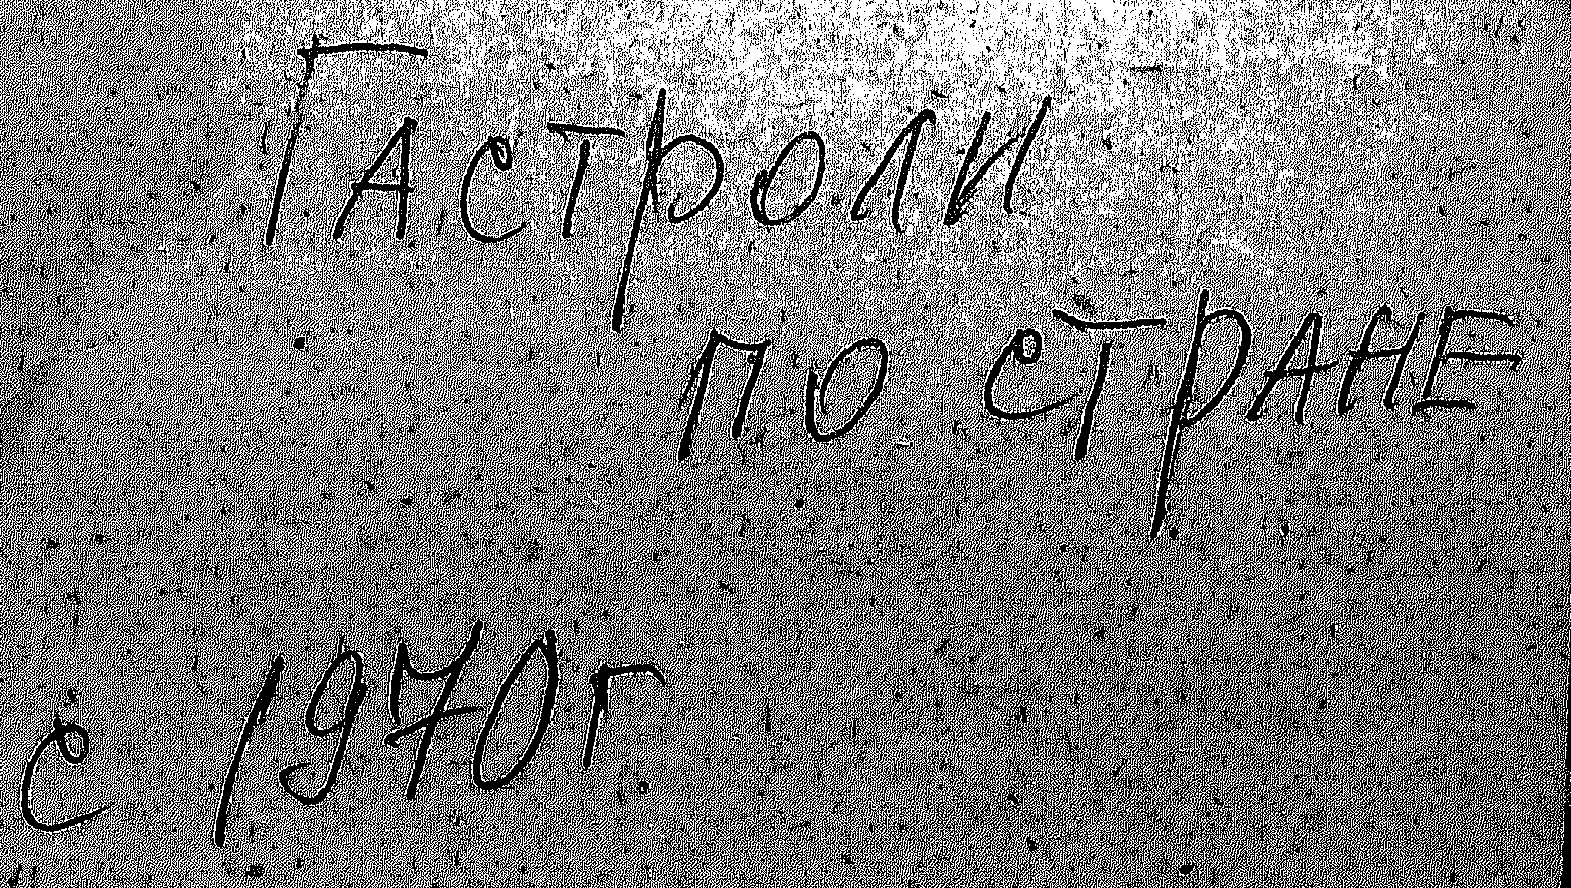 Гастроли
по стране
с 1970г.